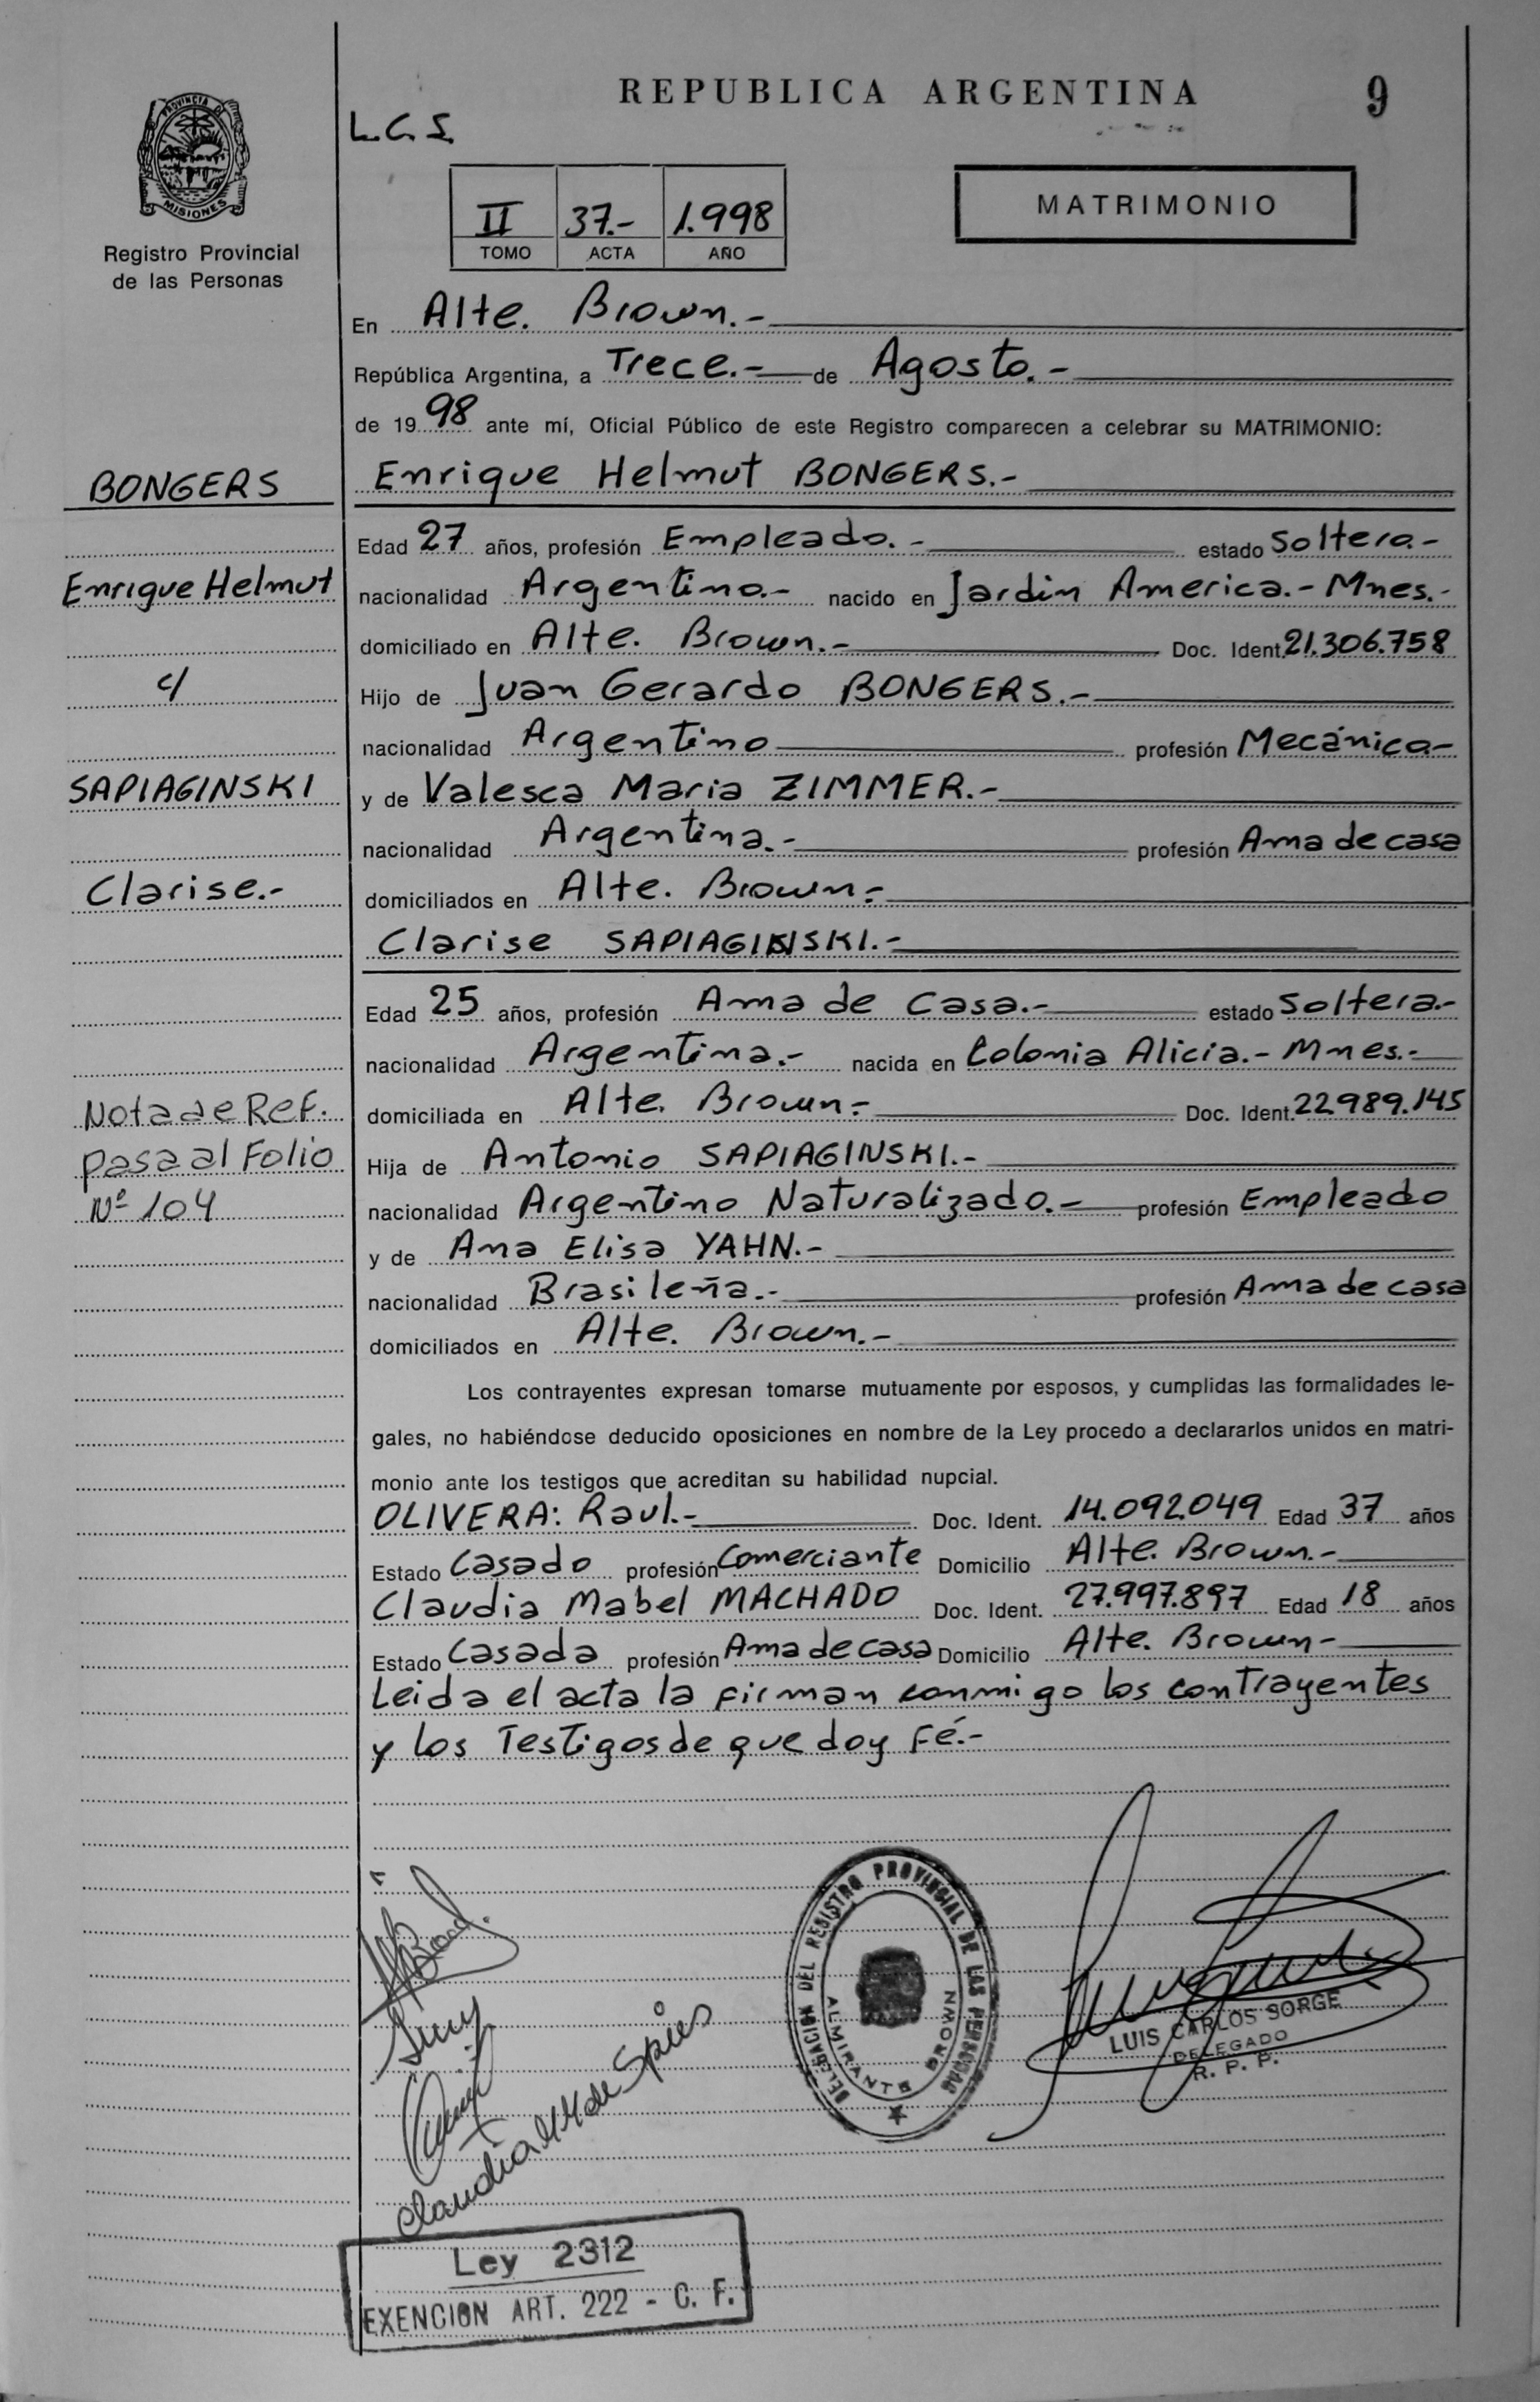 REPUBLICA ARGENTINA
9
PROVINCIA DE
MISIONES
Registro Provincial
de las Personas
L.C.S.
II 37.- 1.998
TOMO ACTA AÑO
MATRIMONIO
En Alte. Brown.-
República Argentina, a Trece.- de Agosto.-
de 1998 ante mí, Oficial Público de este Registro comparecen a celebrar su MATRIMONIO:
BONGERS
Enrique Helmut BONGERS.-
Edad 27 años, profesión Empleado.- estado Soltero.-
Enrique Helmut
nacionalidad Argentino.- nacido en Jardin America.- Mnes.-
domiciliado en Alte. Brown.- Doc. Ident. 21.306.758
c/
Hijo de Juan Gerardo BONGERS.-
nacionalidad Argentino profesión Mecánico.-
SAPIAGINSKI
y de Valesca Maria ZIMMER.-
nacionalidad Argentina.- profesión Ama de casa
Clarise.-
domiciliados en Alte. Brown.-
Clarise SAPIAGINSKI.-
Edad 25 años, profesión Ama de Casa.- estado Soltera.-
nacionalidad Argentina.- nacida en Colonia Alicia.- Mnes.-
Nota de Ref.
domiciliada en Alte. Brown.- Doc. Ident. 22.989.145
pasa al Folio
Hija de Antonio SAPIAGINSKI.-
Nº 104
nacionalidad Argentino Naturalizado.- profesión Empleado
y de Ana Elisa YAHN.-
nacionalidad Brasileña.- profesión Ama de casa
domiciliados en Alte. Brown.-
Los contrayentes expresan tomarse mutuamente por esposos, y cumplidas las formalidades le-
gales, no habiéndose deducido oposiciones en nombre de la Ley procedo a declararlos unidos en matri-
monio ante los testigos que acreditan su habilidad nupcial.
OLIVERA: Raul.- Doc. Ident. 14.092.049 Edad 37 años
Estado Casado profesión Comerciante Domicilio Alte. Brown.-
Claudia Mabel MACHADO Doc. Ident. 27.997.897 Edad 18 años
Estado Casada profesión Ama de casa Domicilio Alte. Brown-
Leida el acta la firman conmigo los contrayentes
y los Testigos de que doy Fé.-
DELEGACION DEL REGISTRO PROVINCIAL DE LAS PERSONAS
ALMIRANTE BROWN
LUIS CARLOS SORGE
DELEGADO
R. P. P.
Claudia M M de Spies
Ley 2312
EXENCION ART. 222 - C. F.